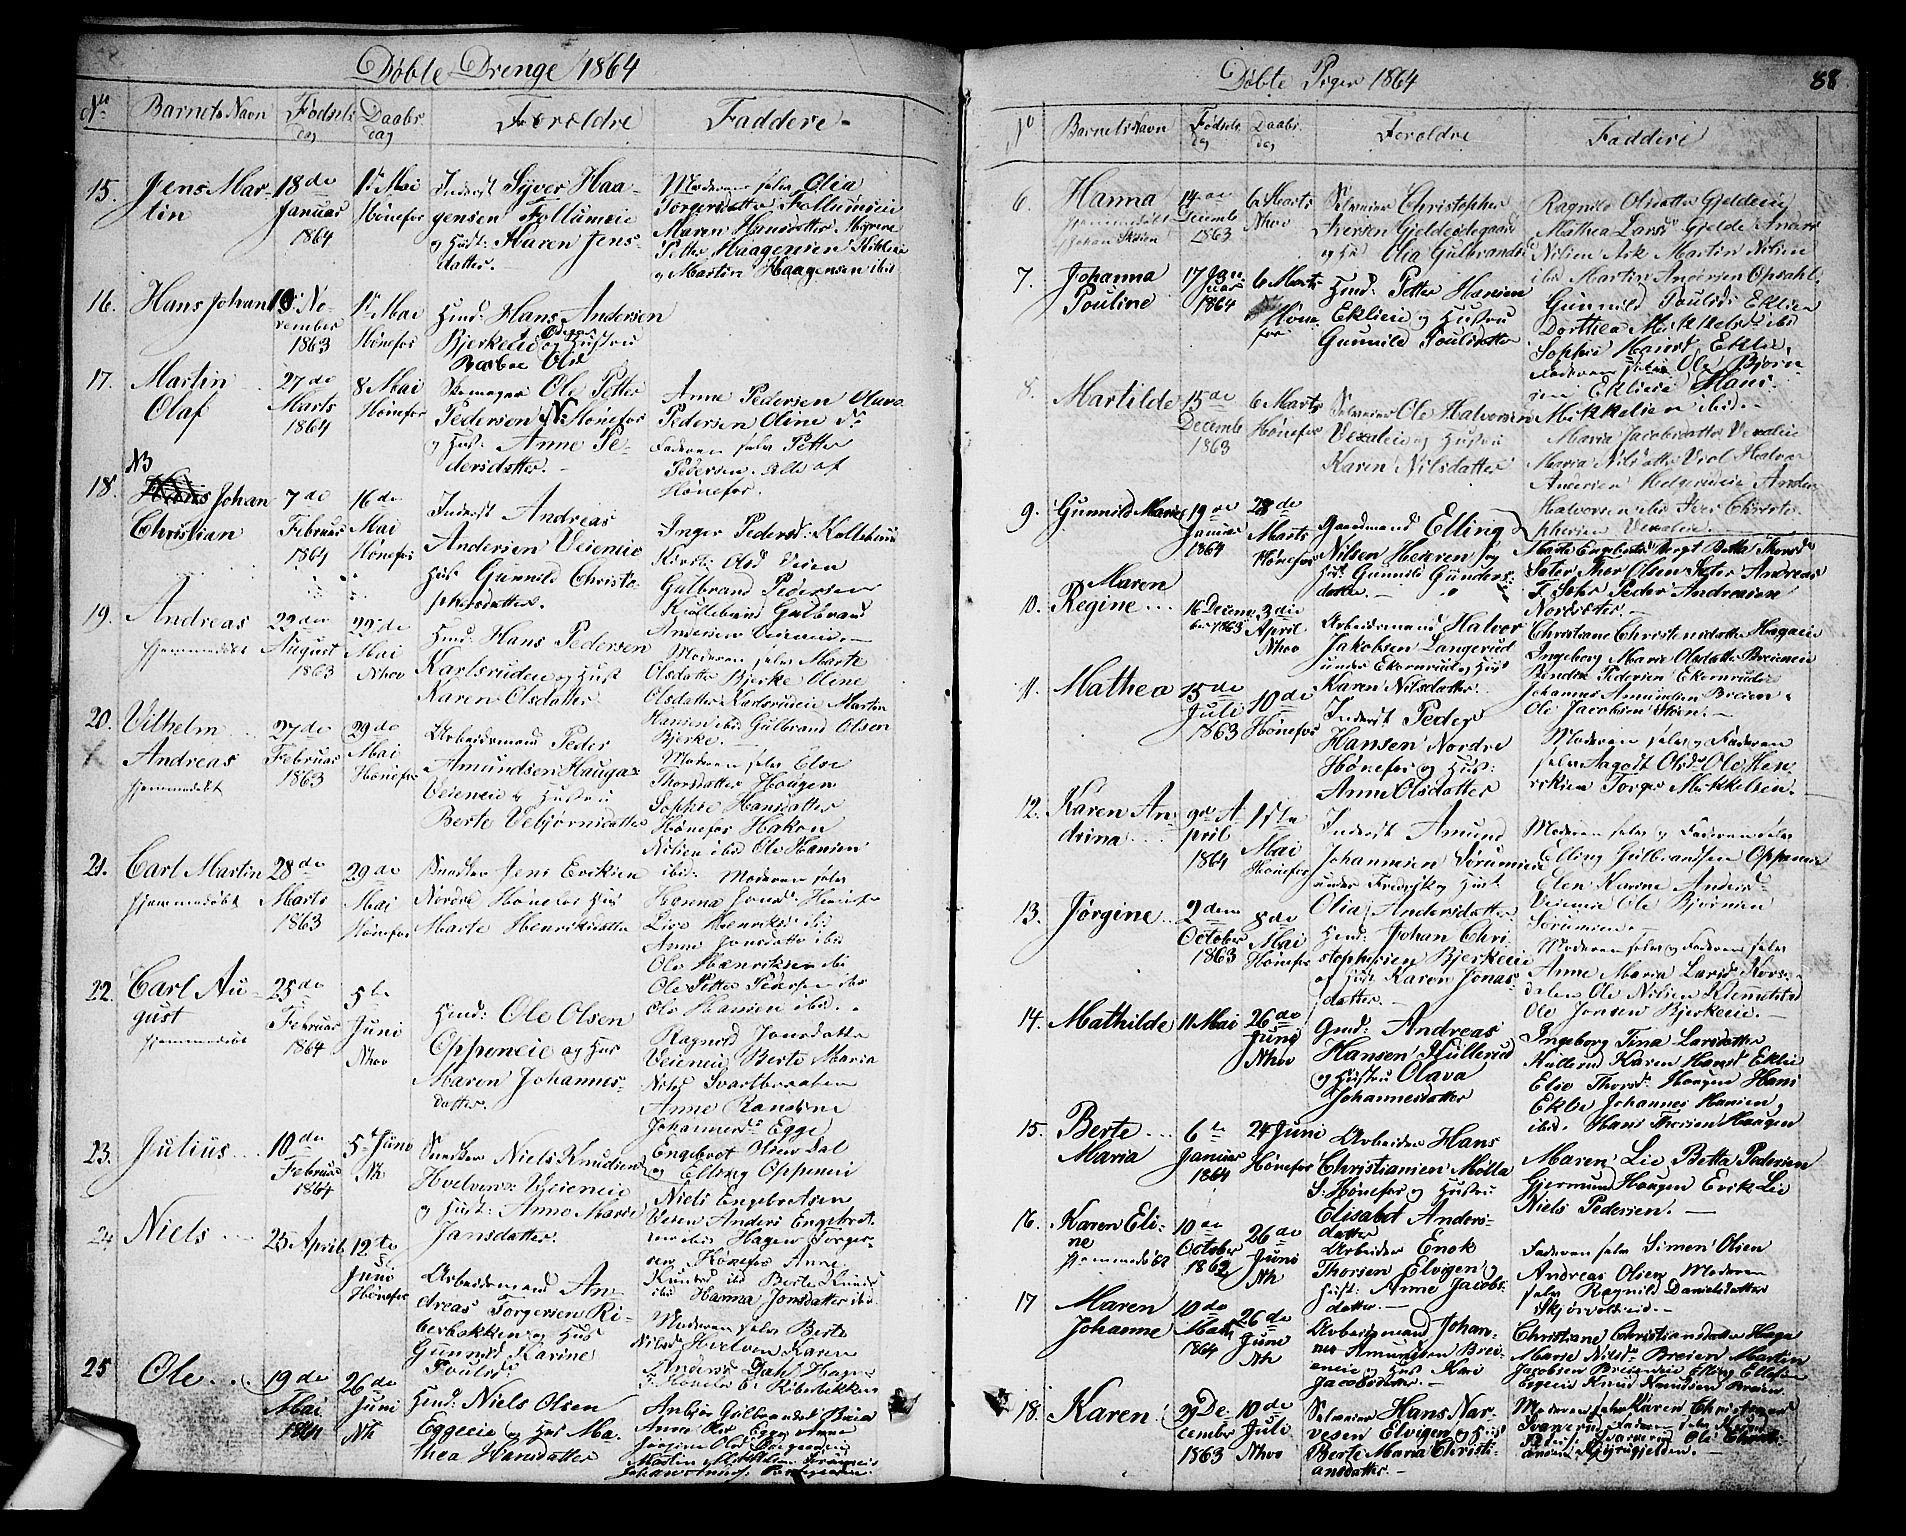 Døbte Drenge 1864
No
Barnets Navn
Fødsels
dag
Daabs
dag
Forældre
Faddere
15.
Jens Mar-
tin
18de
Januar
1864
1ste Mai
Hønefos
Inderst Syver Haa-
gensen Follumeie
og Hust: Karen Jens-
datter.
Moderen selv Olia
Torgersdatter Follumeie
Maren Hansdatter
Petter Haagensen
og Martin Haagensen ibid
16.
Hans Johan
No-
vember
1863
1ste Mai
Hønefos
Huusmd: Hans Andersen
Bjerkeeie og Hustru
Barbro Olsd
17.
Martin
Olaf
27de
Marts
1864
8 Mai
Hønefos
Skomager Ole Petter
Pedersen N. Hønefos
og Hust. Anne Pe-
dersdatter.
Anne Pedersen
Pedersen Oline
Faderen selv Petter
Pedersen. Alle af
Hønefos.
NB
18.
Johan
Christian
7de
Februar
1864
16de
Mai
Hønefos
Inderst Andreas
Andersen Veieneie
Hus Gunnild Christo-
phersdatter.
Inger Pedersd: Kullebund
Kirsti Olsd Veien
Gulbrand Pedersen
Kullebund Gulbrand
Andersen Veieneie.
19.
Andreas
hjemmedøbt
22den
August
1863
22de
Mai
Nhov
Huusmd: Hans Pedersen
Karlsrudeie og Hust
Karen Olsdatter.
Moderen selv Marte
Olsdatter Bjerke Oline
Olsdatter Karlsrudeie Martin
Hansen ibid Gulbrand Olsen
Bjerke.
20.
Vilhelm
Andreas
hjemmedøbt
27de
Februar
1863
29de
Mai
Hønefos
Arbeidsmand Peder
Amundsen Hauga-
Veieneie og Hustru
Berte Vebjørnsdatter
Moderen selv Else
Thorsdatter Hougen
Sophie Hansdatter
Hønefos Hakon
Nilsen ibid Ole Hansen
ibid.
21.
Carl Martin
hjemmedøbt
28de
Marts
1863
29de
Mai
Hønefos
Snedker Jens Eriksen
Nordre Hønefos Hus
Marte Henriksdatter
Moderen selv
Hanna Jonsd: Hønefos
Live Henriks: ibid
Anne Jonsdatter ibid
Ole Henriksen ibi
Ole Petter Pedersen ibid
Ole Hansen ibid.
22.
Carl Au-
gust
hjemmedøbt
25de
Februar
1864
5te
Juni
Nhov
Huusmd: Ole Olsen
Oppeneie og Hus
Maren Johannes-
datter.
Ragnild Jonsdatter
Veieneie Berte Maria
Nilsd Svartbraaten
Anne Randine
Johannesd: Egge
Engebret Olsen Dal
og Elling Oppenei
23.
Julius
10de
Februar
1864
5te Juno
Nh
Snedker Niels Knudsen
Hvelven: Veieneie
og Hust: Anne Marie
Jansdatter.
Niels Engebretsen
Veien Anders Engebret-
sen ibid Hagen Torger-
sen Hønefos Anne
Knudsd ibid Berte Knudsd
ibid Hanna Jonsdatter ibid.
24
Niels
25 April
12te
Juno
Hønefos
Arbeidsmand An-
dreas Torgersen Ri-
berbakken og Hus
Gunnild Karine
Poulsd:
Moderen selv Berte
Nilsd Hvelven Karen
Andersd Dahl Hagen
T. Hønefos E. Riberbakken
25
Ole
19de
Mai
1864
26de
Juni
Nh
Huusmd: Niels Olsen
Eggeeie og Hus Ma-
thea Hansdatter
Gulbrandsd
Anne Olsd Egge Anne

Døbte Piger 1864
88
No
Barnets Navn
Fødsels
dag
Daabs
dag
Forældre
Faddere
6.
Hanna
hjemmedøbt
Johan Skøien
14de
Decemb
1863
6 Marts
Nhov
Selveier Christopher
Iversen Gjeldeødegaard
og Hu Olia Gulbrandsd
Ragnild Olsdatter Gjeldeeie
Mathea Larsd Gjelde Anders
Nilsen Ask Martin Nilsen
ibid Martin Andersen Opsahl
7.
Johanna
Pouline
17 Jan
uar
1864
6 Marts
Høne
fos
Husmd: Petter Hansen
Eklieie og Hustru
Gunnild Poulsdatter
Gunnild Poulsd: Eklien
Dorthea Mikkelsd: ibid
Sophie Hansd Eklie
Faderen selv Ole Bjørn
sen Eklieie Hans
Mikkelsen ibid.
8.
Martilde
15de
Decemb
1863
6 Marts
Hønefos
Selveier Ole Halvorsen
Vexaleie og Hustru
Karen Nilsdatter
Maria Jacobsdatter Vexaleie
Maria Nilsdatter Viol Halvor
Andersen Helgerudeie Anders
Halvorsen ibid Iver Christo-
phersen Vexaleie.
9.
Gunnild Marie
19de
Januar
1864
28de
Marts
Hønefos
Gaardmand Elling
Nilsen Heieren og
Hus. Gunnild Gunders-
datter.
Marte Engebretsd: Berget Betta Thorsd
Sæter Thor Olsen Sæter Andreas
F. Sohr Peder Andreasen
Nordsæter.
10.
Maren
Regine
16 Decem
ber 1863
3die
April
Nhov
Arbeidsmand Halvor
Jakobsen Langerud
under Ekornrud og Hust
Karen Nilsdatter
Christiane Christensdatter Hagaeie
Ingeborg Marie Olsdatter Breieneie
Pedersen Ekornrudeie
Johannes Amundsen Breien
Ole Jacobsen Skøien.
11.
Mathea
15de
Juli
1863
10de
Hønefos
Inderst Peder
Hansen Nordre
Hønefos og Hust:
Anne Olsdatter
Moderen selv og Faderen
selv Aagodt Olsd Ole Hen-
riksen Torger Mikkelsen.
12.
Karen An-
drina
9de A
pril
1864
1ste
Mai
Hønefos
Inderst Amund
Johannesen Sørumeie
under Fredrik og Hust
Olia Andersdatter
Moderen selv og Faderen selv
Elling Gulbrandsen Oppeneie
Elen Karine Andersd
Veieneie Ole Bjørnsen
Sørumeie.
13.
Jørgine
2den
October
1863
8de
Mai
Hønefos
Husmd: Johan Chri-
stophersen Bjerkeeie
og Hust Karen Jonas-
datter.
Moderen selv og Faderen selv
Anne Maria Larsd Kors-
dalen Ole Nilsen Klemetstad
Ole Jonsen Bjerkeeie.
14.
Mathilde
11 Mai
26de
Juni
Nhov
Gmd: Andreas
Hansen Hullerud
og Hustru Olava
Johannesdatter
Ingeborg Tina Larsdatter
Hullerud Karen Hansd Eklie
Elie Thorsd: Hougen Hans
Eklie Johannes Hansen
ibid. Hans Thorsen Hougen
15.
Berte
Maria
6te
Januar
1864
24 Juni
Hønefos
Arbeider Hans
Christiansen Mølla
S: Hønefos og Hustru
Elisabet Anders-
datter
Maren Lie Betta Pedersen
Gjermund Hougen Erik Lie
Niels Pedersen.
16.
Karen Eli-
ne
hjemmedøbt
10de
October
1862
26de
Juni
Nh
Arbeider Enok
Thorsen Elvigen og
Hust: Anne Jacobs-
datter.
Faderen selv Simen Olsen
Andreas Olsen Moderen
selv Ragnild Danielsdatter
Skjørvoldeie.
17
Maren
Johanne
10de
Marts
1864
26de
Juni
Nh
Arbeidsmand Johan-
nes Amundsen Brei-
eneie og Hust Kari
Jacobsdatter.
Christiane Christiansdatter Haga
Marie Nilsd: Breien Martin
Jacobsen Breieneie Elling Ellefsen
Eggeeie Knud Knudsen Breien
18.
Karen
29 De
cember
1863
10de
Juli
Nhov
Selveier Hans Nar-
vesen Elvigen og Hust
Berte Maria Christi-
ansdatter.
Moderen selv Karen Christiansd
Svarverud Faderen selv
Svarverud Ole Christi-
ansen